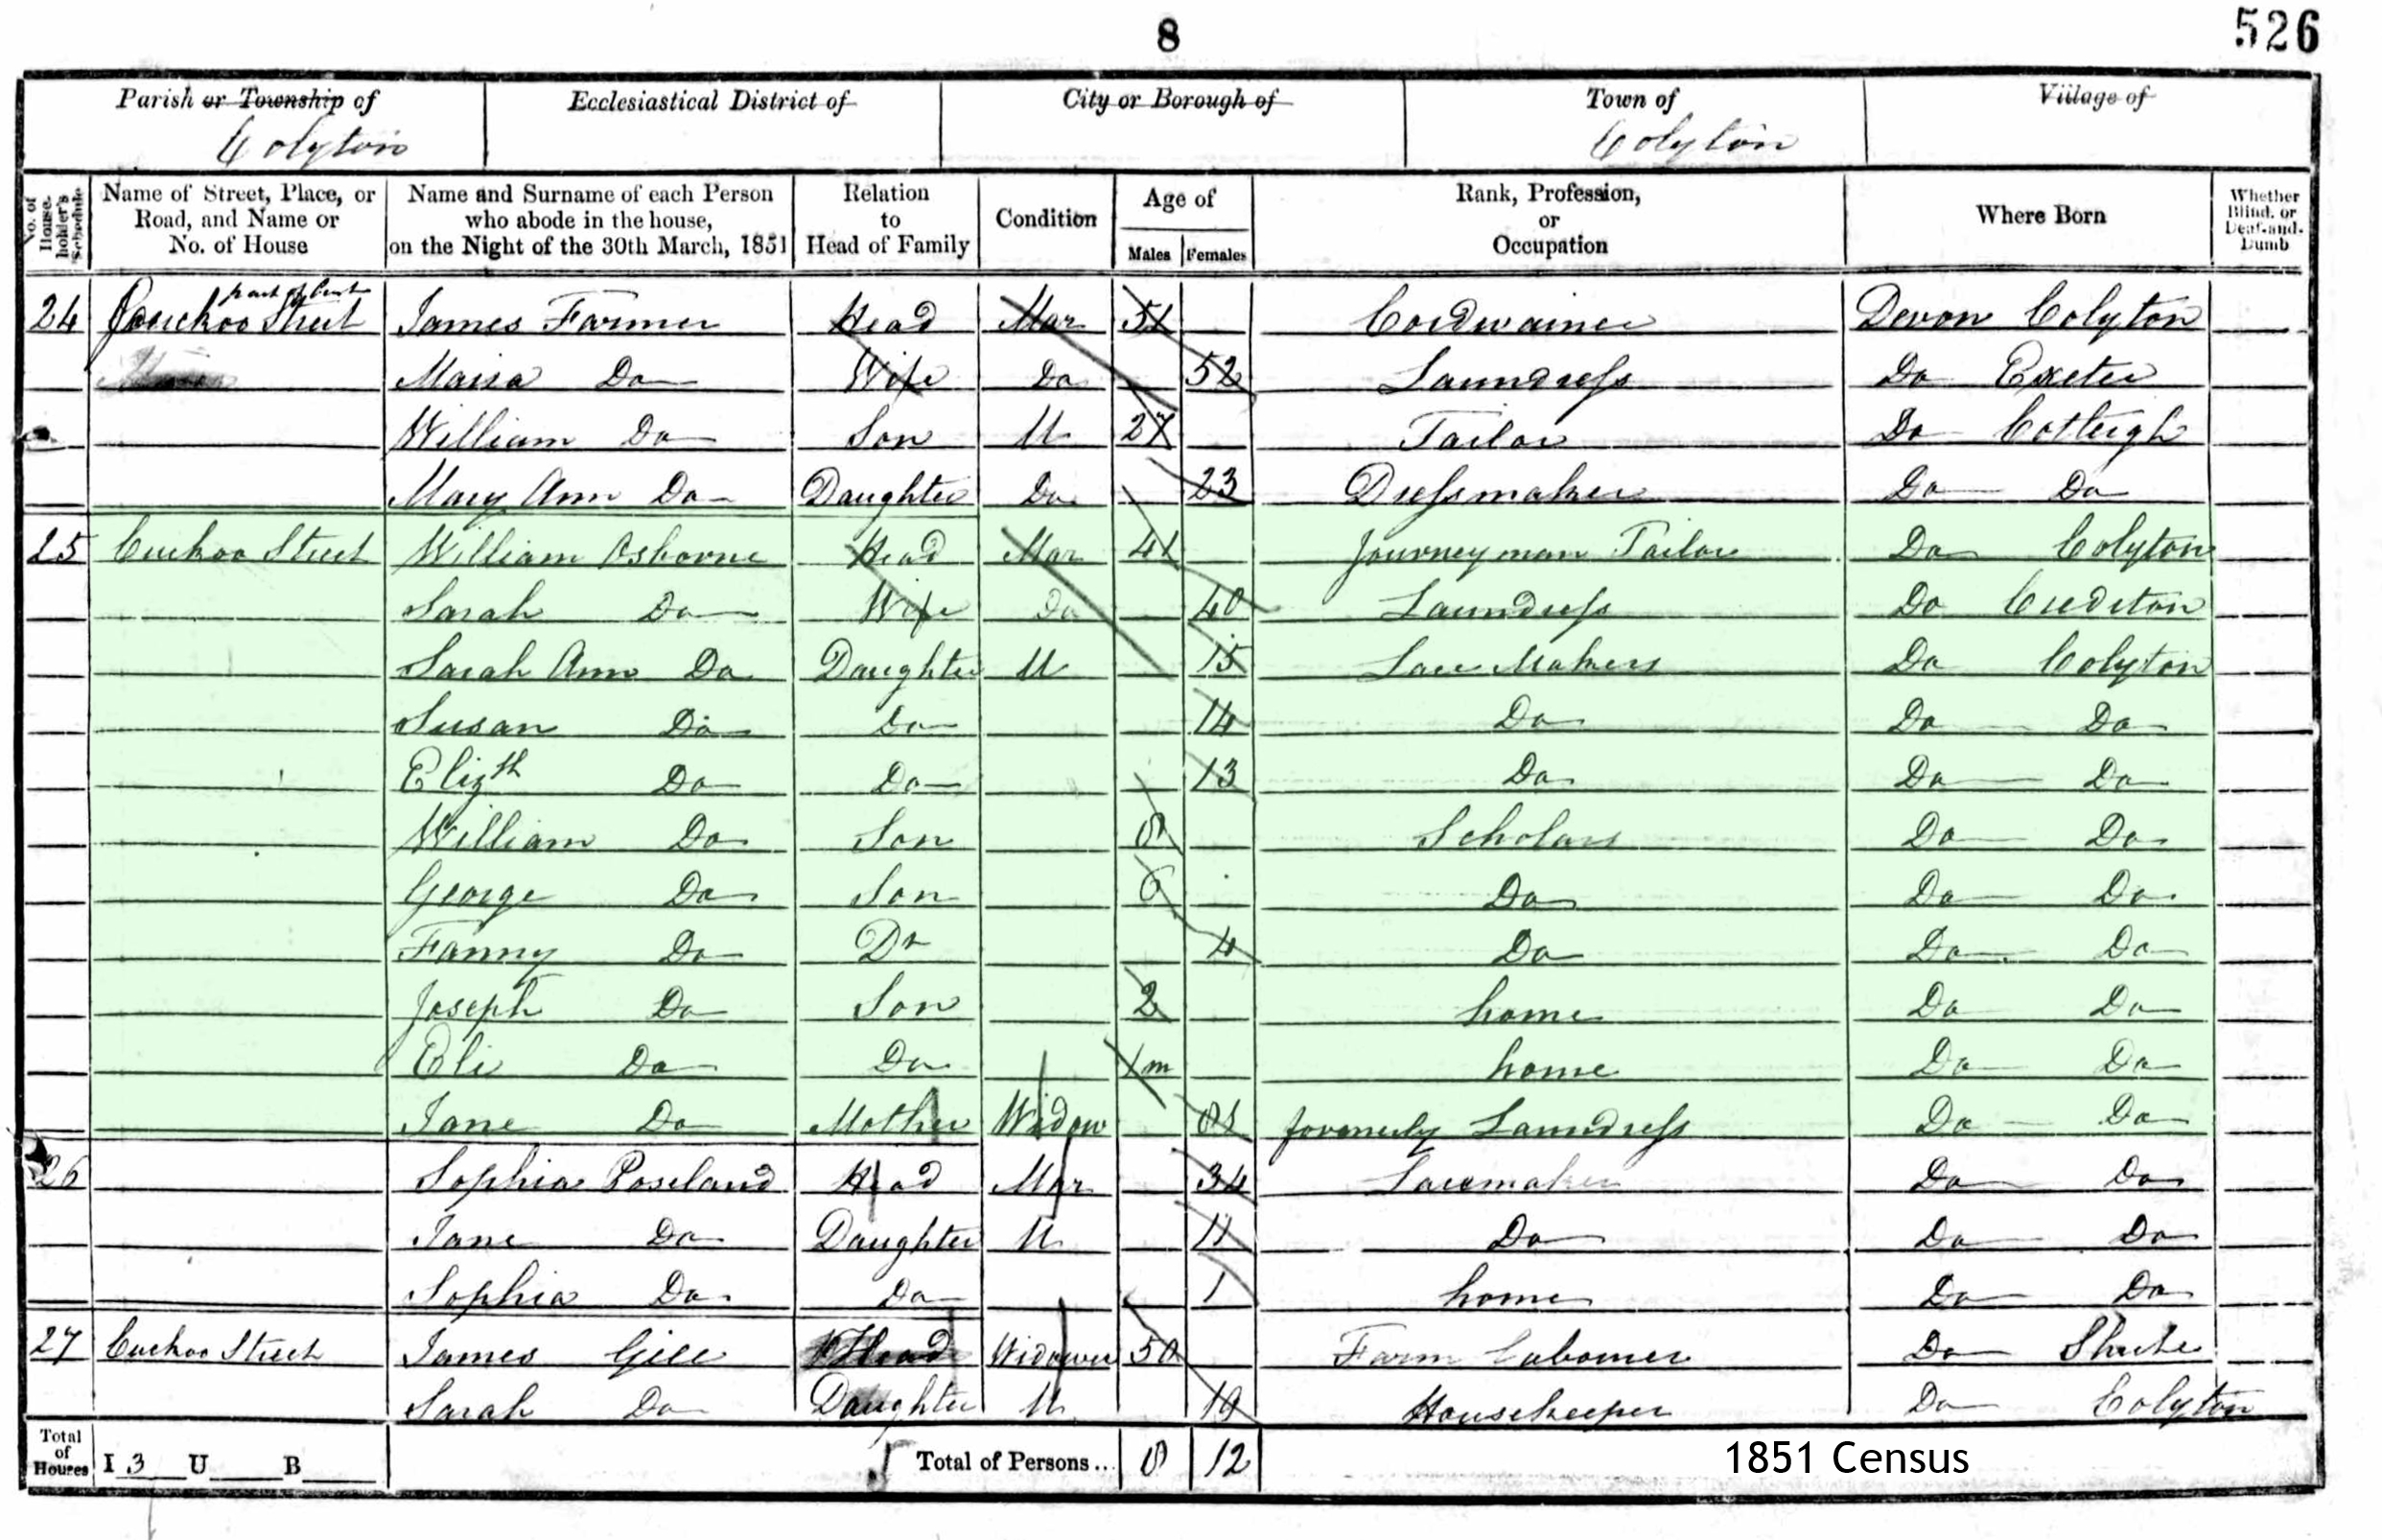 8
526
Parish or Township of Ecclesiastical District of City or Borough of Town of Village of
Colyton Colyton
No. of House-holder's Schedule Name of Street, Place, or Road, and Name or No. of House Name and Surname of each Person who abode in the house, on the Night of the 30th March, 1851 Relation to Head of Family Condition Age of Males Females Rank, Profession, or Occupation Where Born Whether Blind, or Deaf-and-Dumb
part of
24 Cuckoo Street James Farmer Head Mar 51 Cordwainer Devon Colyton
Maria Do Wife Do 52 Laundress Do Exeter
William Do Son U 27 Tailor Do Cotleigh
Mary Ann Do Daughter Do 23 Dressmaker Do Do
25 Cuckoo Street William Osborne Head Mar 41 Journeyman Tailor Do Colyton
Sarah Do Wife Do 40 Laundress Do Crediton
Sarah Ann Do Daughter U 15 Lace Makers Do Colyton
Susan Do Do 14 Do Do Do
Elizth Do Do 13 Do Do Do
William Do Son 8 Scholars Do Do
George Do Son 6 Do Do Do
Fanny Do Dr 4 Do Do Do
Joseph Do Son 2 home Do Do
Eli Do Do 1m home Do Do
Jane Do Mother Widow 81 formerly Laundress Do Do
26 Sophia Poseland Head Mar 34 Lacemaker Do Do
Jane Do Daughter U 11 Do Do Do
Sophia Do Do 1 home Do Do
27 Cuckoo Street James Gill Head Widower 50 Farm Labourer Do Shute
Sarah Do Daughter U 19 Housekeeper Do Colyton
Total of Houses I 3 U B Total of Persons... 8 12
1851 Census